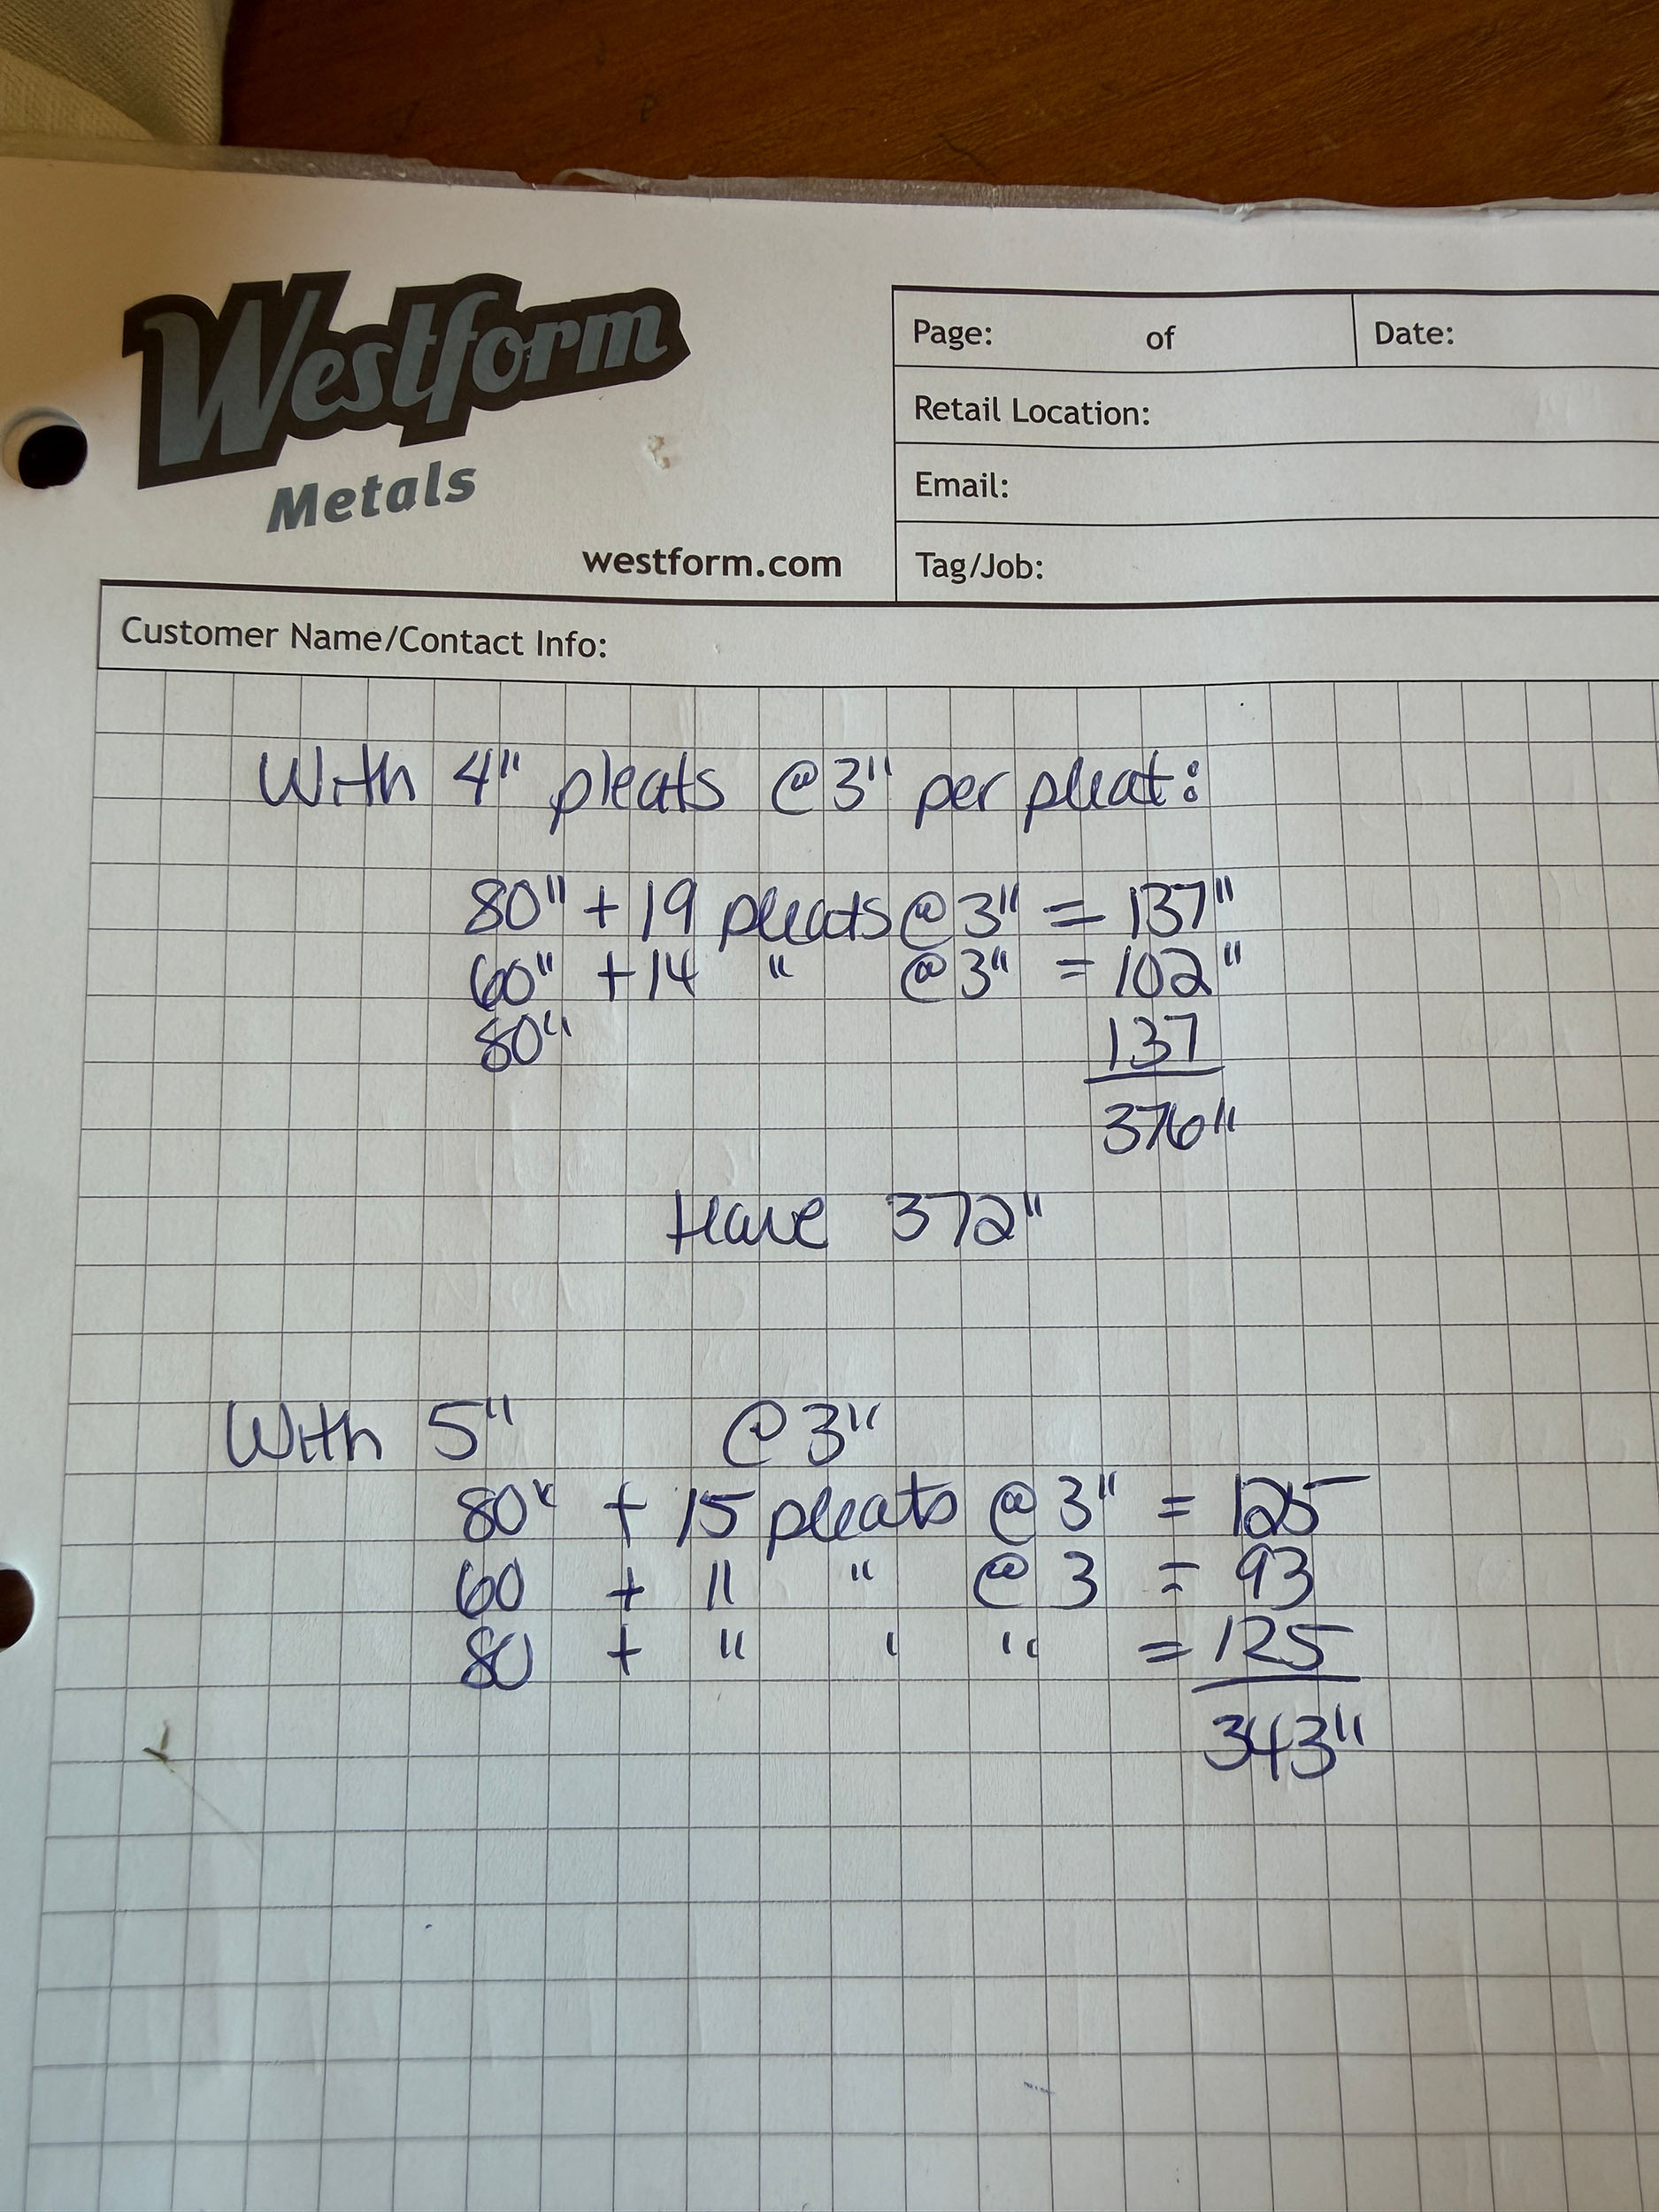 Westform
Metals
westform.com
Page: of Date:
Retail Location:
Email:
Tag/Job:
Customer Name/Contact Info:
With 4" pleats @ 3" per pleat:
80" + 19 pleats @ 3" = 137"
60" + 14 " @ 3" = 102"
80" 137
376"
Have 372"
With 5" @ 3"
80" + 15 pleats @ 3" = 125
60 + 11 " @ 3 = 93
80 + " " " = 125
343"